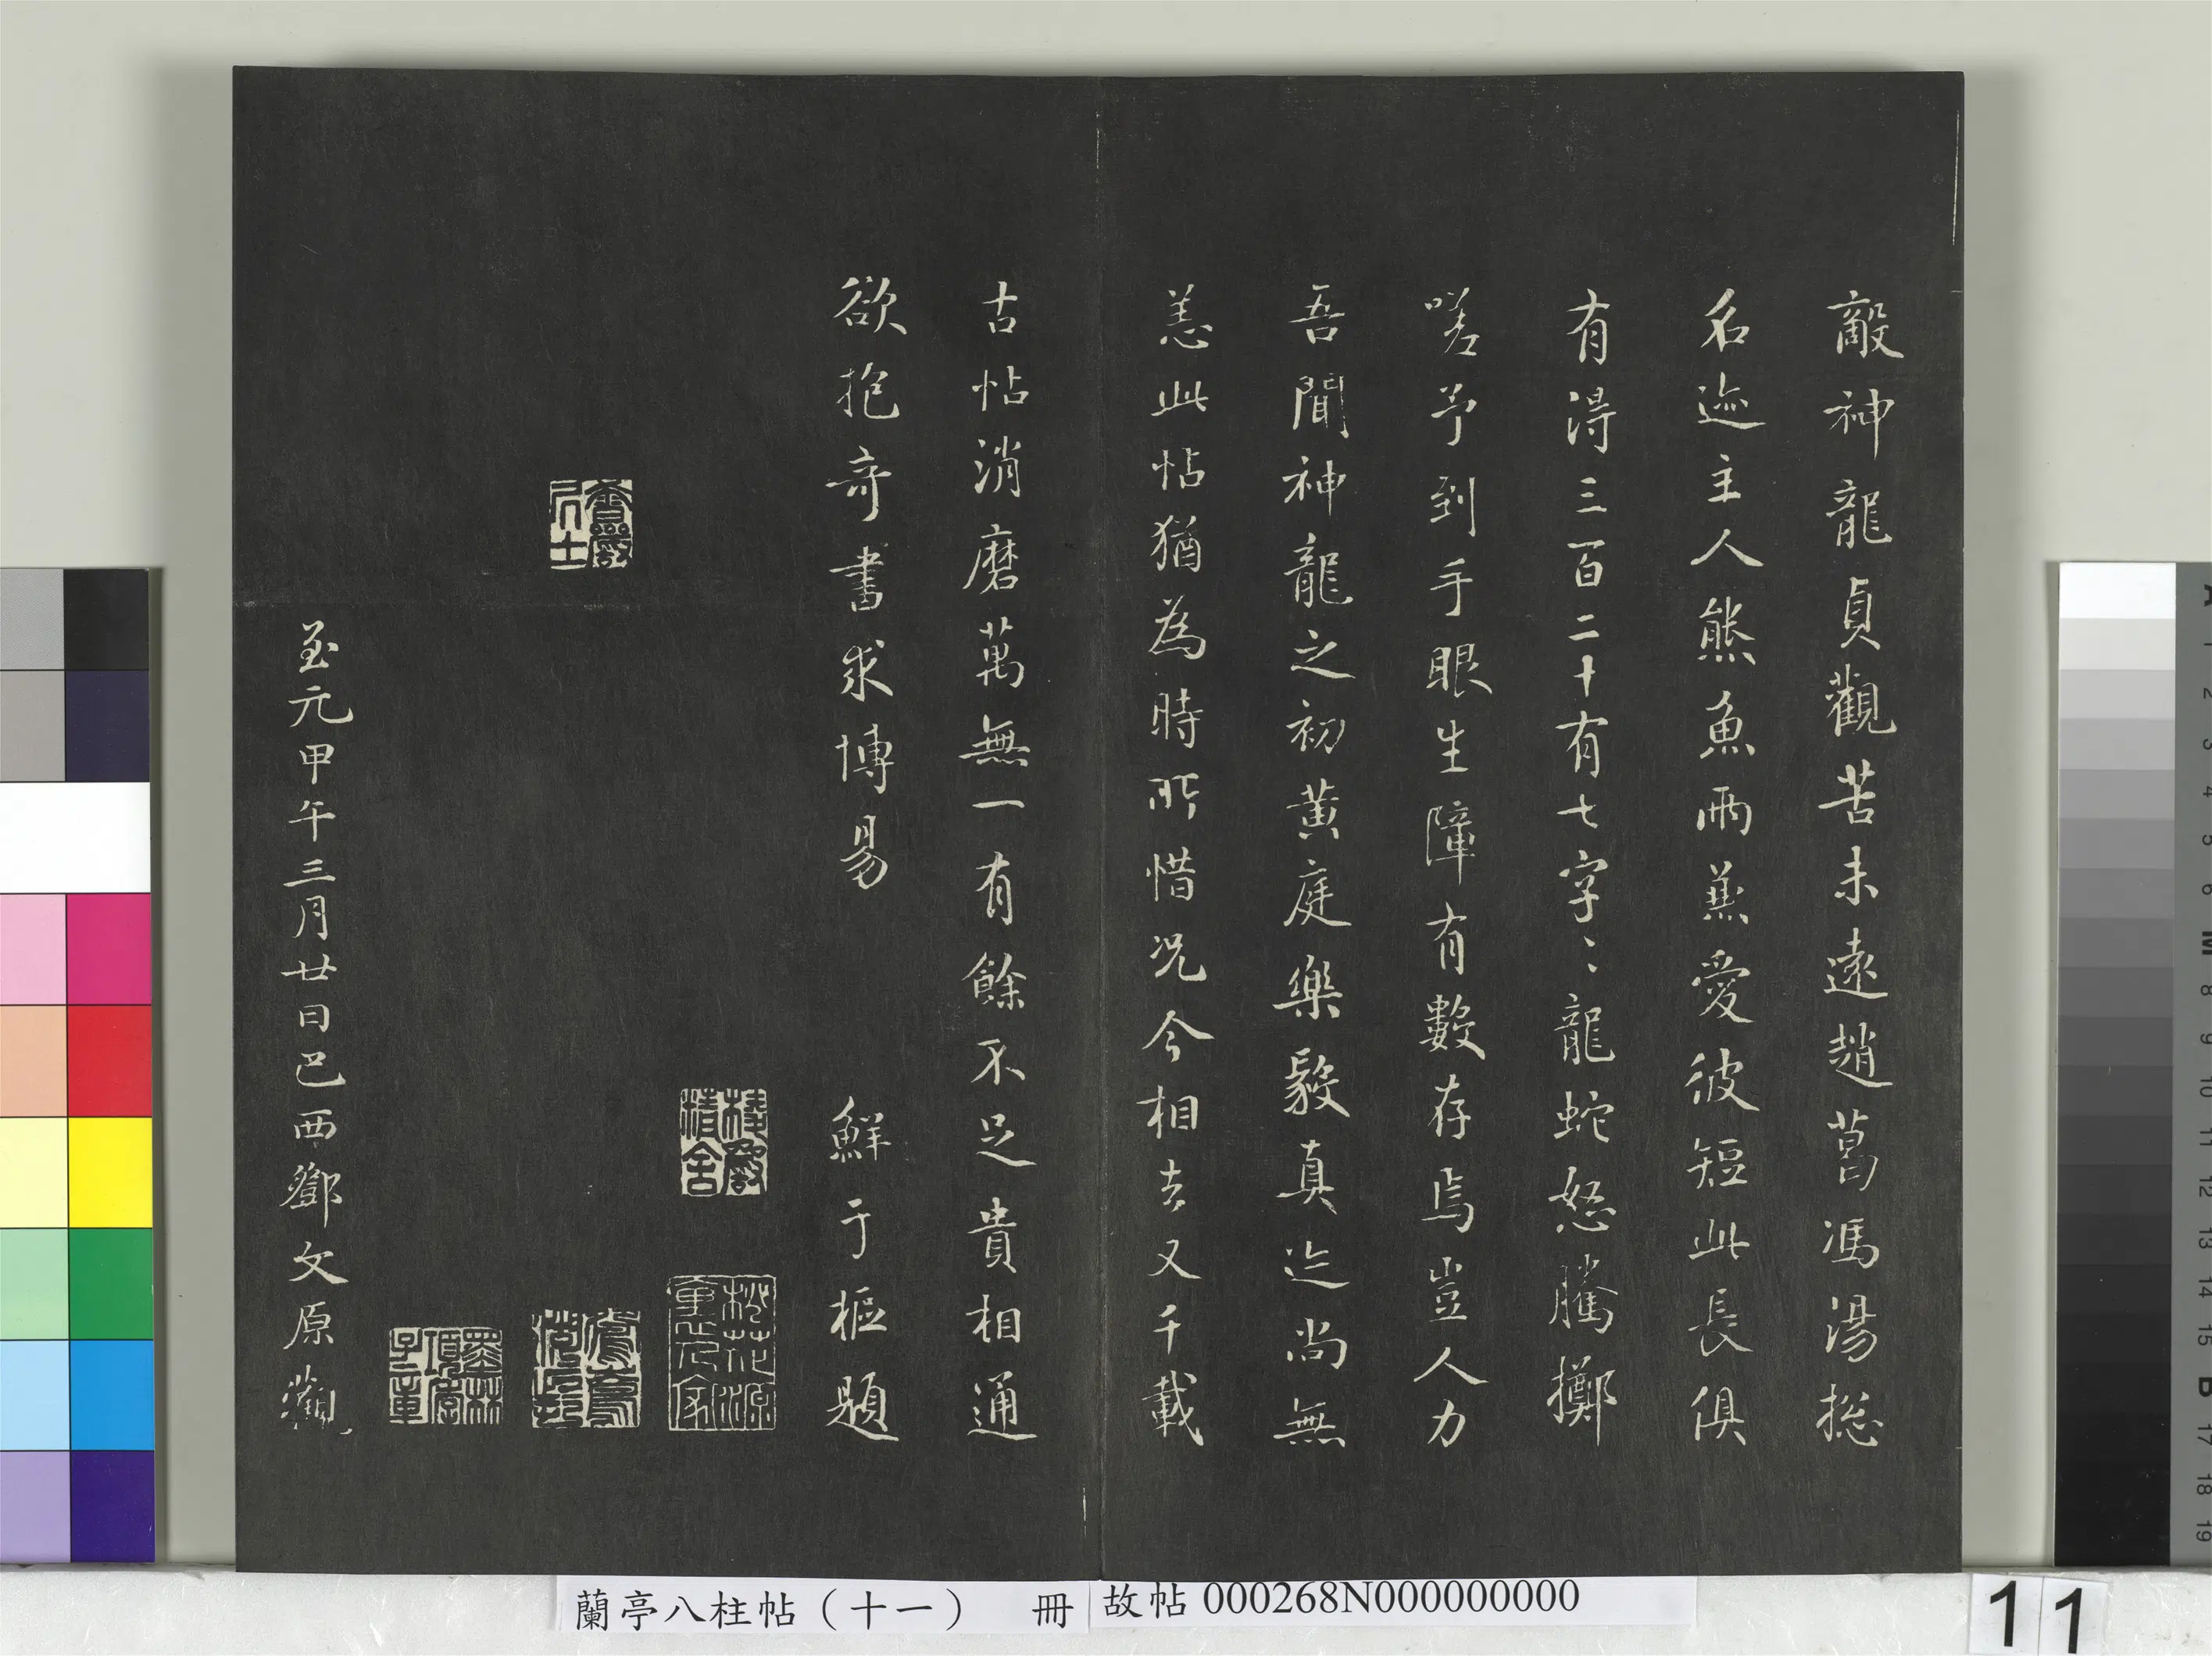 㪣神龍貞觀苦未遠趙葛馮湯摠
名迹主人熊魚兩兼愛彼短此長俱
有得三百二十有七字〻龍蛇怒騰擲
嗟予到手眼生障有數存焉豈人力
吾聞神龍之初黃庭樂毅真迹尚無
恙此帖猶為時所惜况今相去又千載
古帖消磨萬無一有餘不足貴相通
欲抱奇書求博易 鮮于樞題
至元甲午三月廿日巴西鄧文原觀
蘭亭八柱帖（十一） 冊
故帖 000268N000000000
11